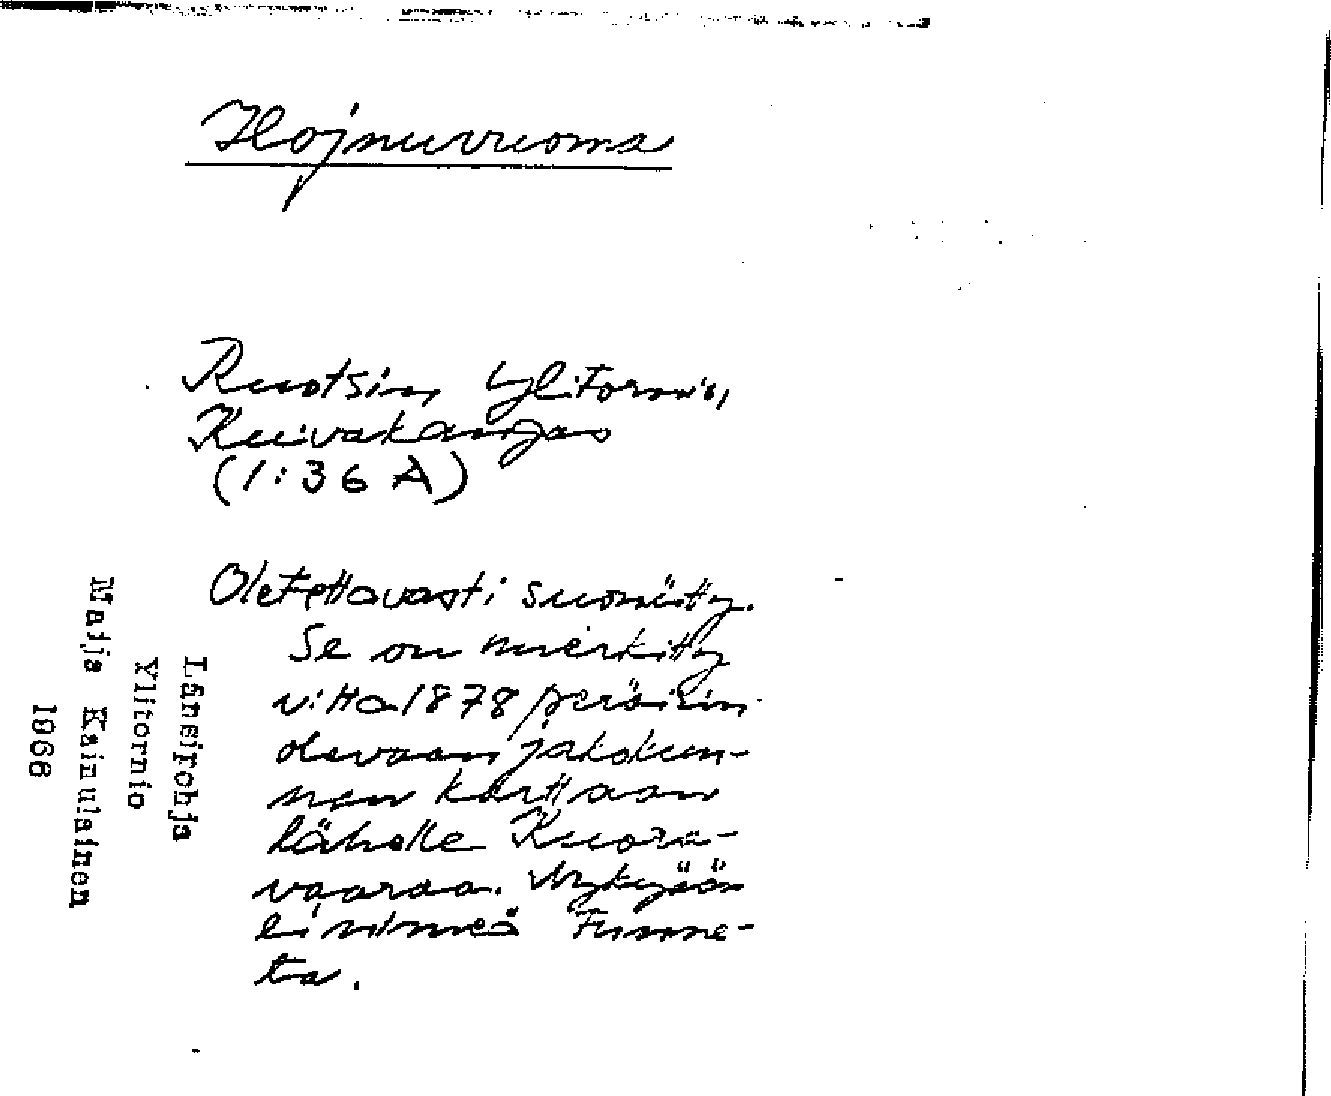 Hojnuvuoma
Ruotsin Ylitornio,
Kuivakangas
(1:36 A)
Oletettavasti suoniitty.
Se on merkitty
v:tta 1878 peräisin
olevaan jakokun-
nan karttaan
lähelle Kuora-
vaaraa. Nykyään
ei nimeä tunne-
ta.
Länsipohja
Ylitornio
Maija Kainulainen
1968